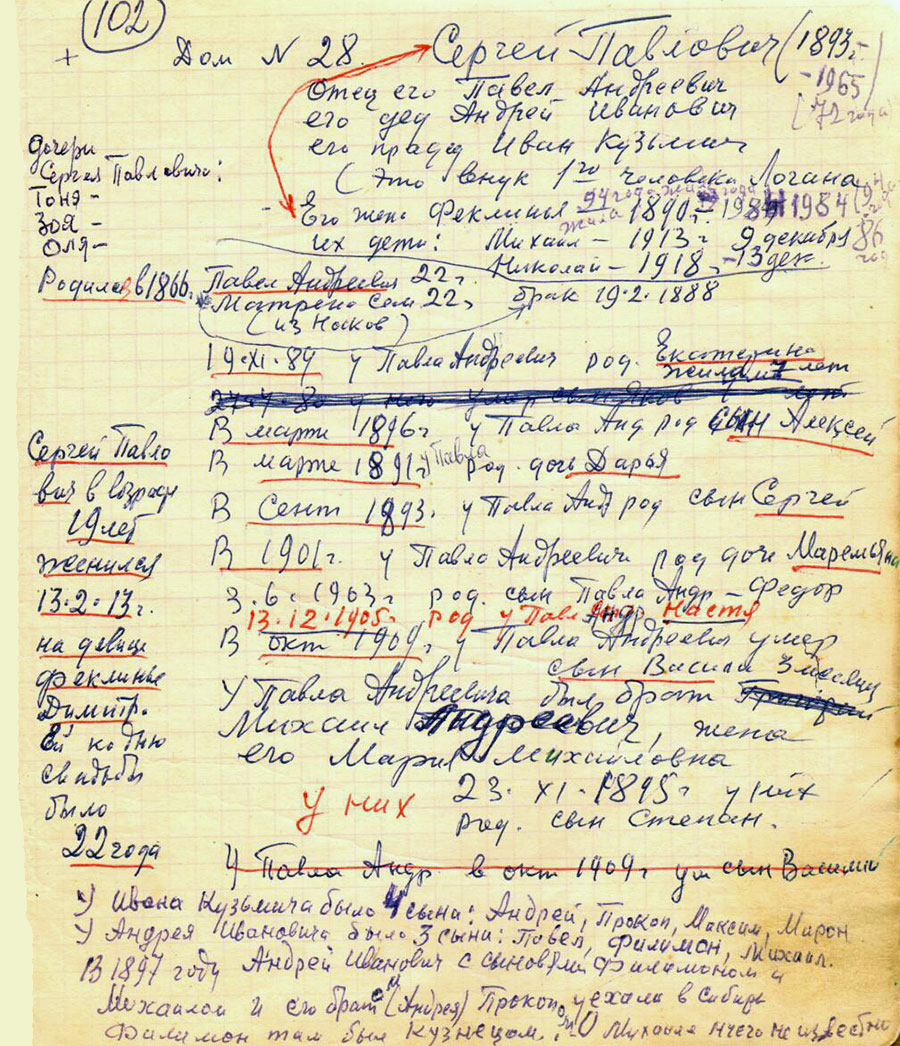 102
+ Дом N 28. Сергей Павлович (1893г-
-1965
(72 года)
Отец его Павел Андреевич
его дед Андрей Иванович
его прадед Иван Кузьмич
(это внук 1го человека Логина
Его жена Феклинья 1890г- 1984
94 года
жила
их дети: Михаил - 1913г 9 декабря
Николай - 1918г -13 дек.
86
год
дочери
Сергея Павловича:
Тоня -
Зоя -
Оля -
Родился в 1866г. Павел Андреевич 22г.
Матрена Сем 22г
(из Носков)
брак 19.2.1888
19.XI.89 у Павла Андреевич род. Екатерина
жила лет
В марте 1896г у Павла Анд род сын Алексей
В марте 1891г у Павла род. дочь Дарья
В Сент 1893. у Павла Анд род сын Сергей
В 1901г. у Павла Андреевич род доч Маремьяна
3.6.1903г род. сын Павла Андр - Федор
13.12.1905г род у Пав Андр Настя
В окт 1909г у Павла Андреевич умер
сын Васили 3 месяц
У Павла Андреевича был брат
Михаил Андреевич, жена
его Мария Михайловна
у них 23.XI.1895г у них
род. сын Степан.
У Павла Андр в окт 1909г ум сын Василий
Сергей Павло
вич в возрасте
19 лет
женился
13.2.13г.
на девице
Феклинье
Димитр.
Ей ко дню
свадьбы
было
22 года
У Ивана Кузьмича было 4 сына: Андрей, Прокоп, Максим, Мирон
У Андрея Ивановича было 3 сына: Павел, Филимон, Михаил.
В 1897 году Андрей Иванович с сыновьями Филимоном и
Михаилом и его брат (Андрея) Прокоп уехали в Сибирь
Филимон там был кузнецом. О Михаиле ничего не известно